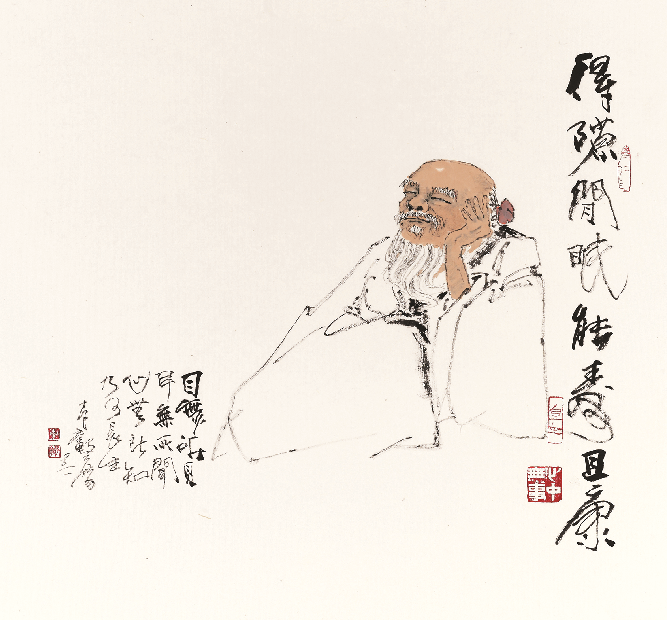 得隙閒眠能壽且康
心中無事
目無所見
耳無所聞
心無所知
乃可長生